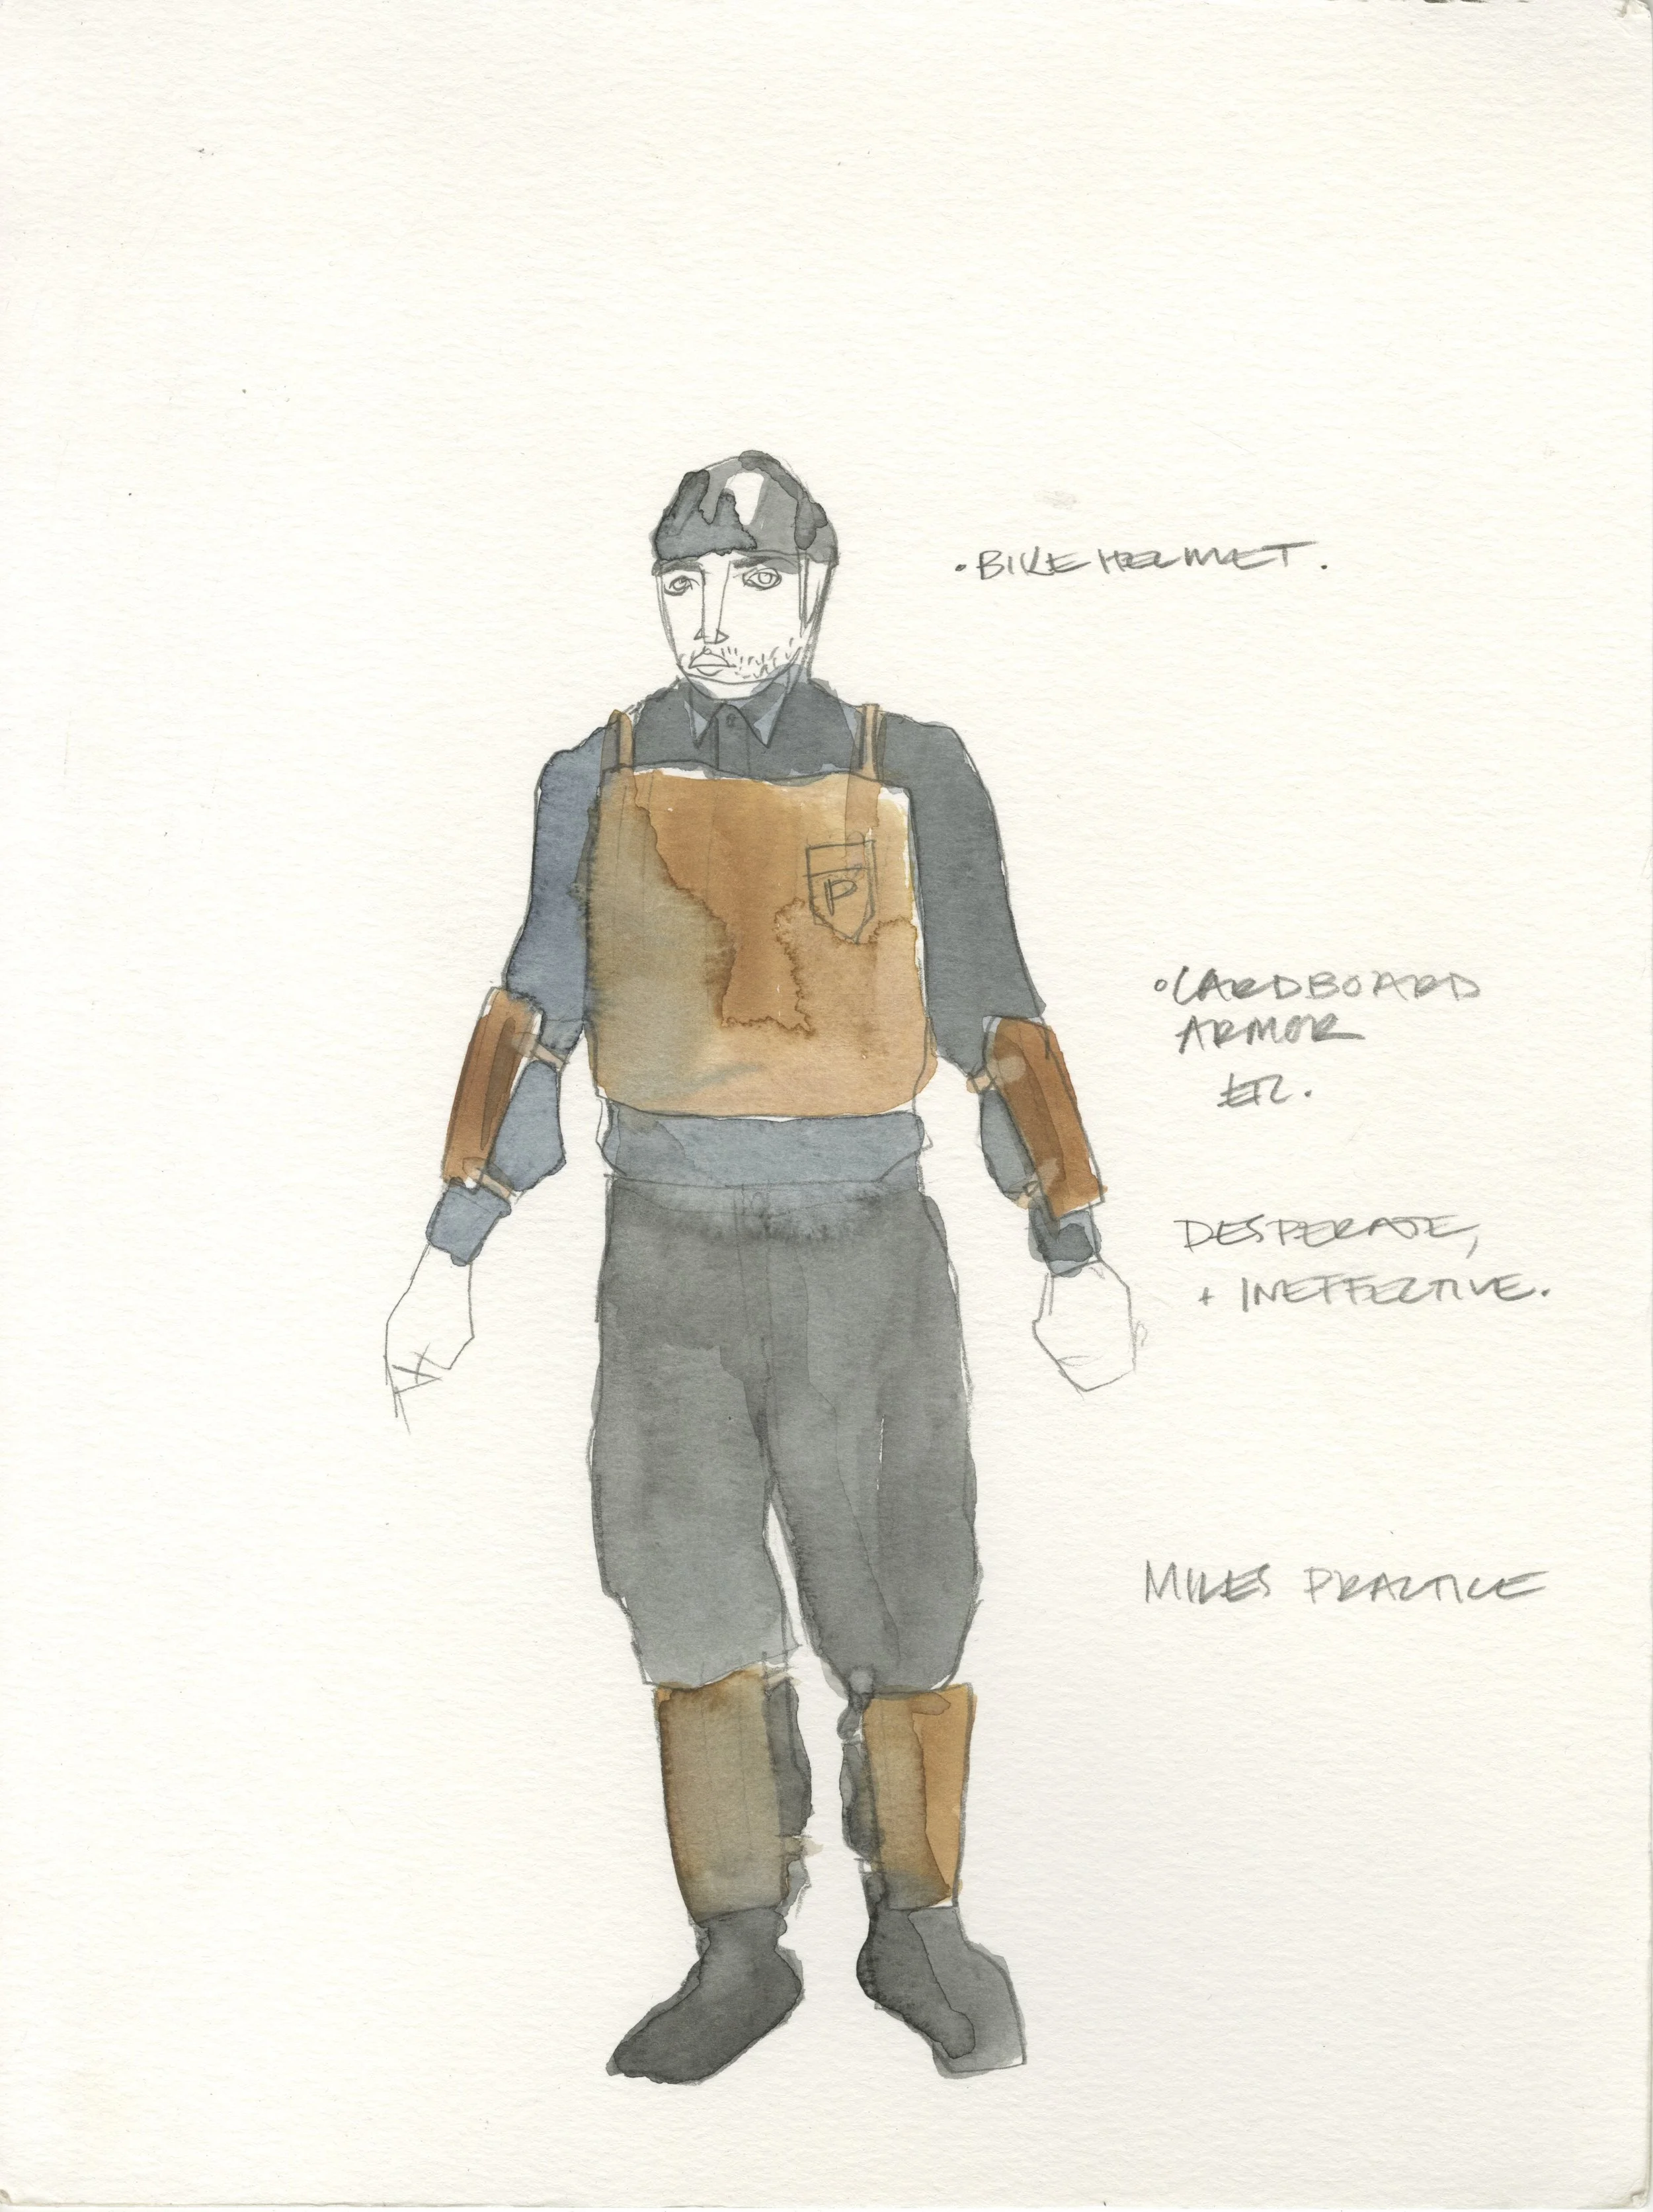 • BIKE HELMET.
P
• CARDBOARD
ARMOR
ETC.
DESPERATE,
+ INEFFECTIVE.
MILES PRACTICE